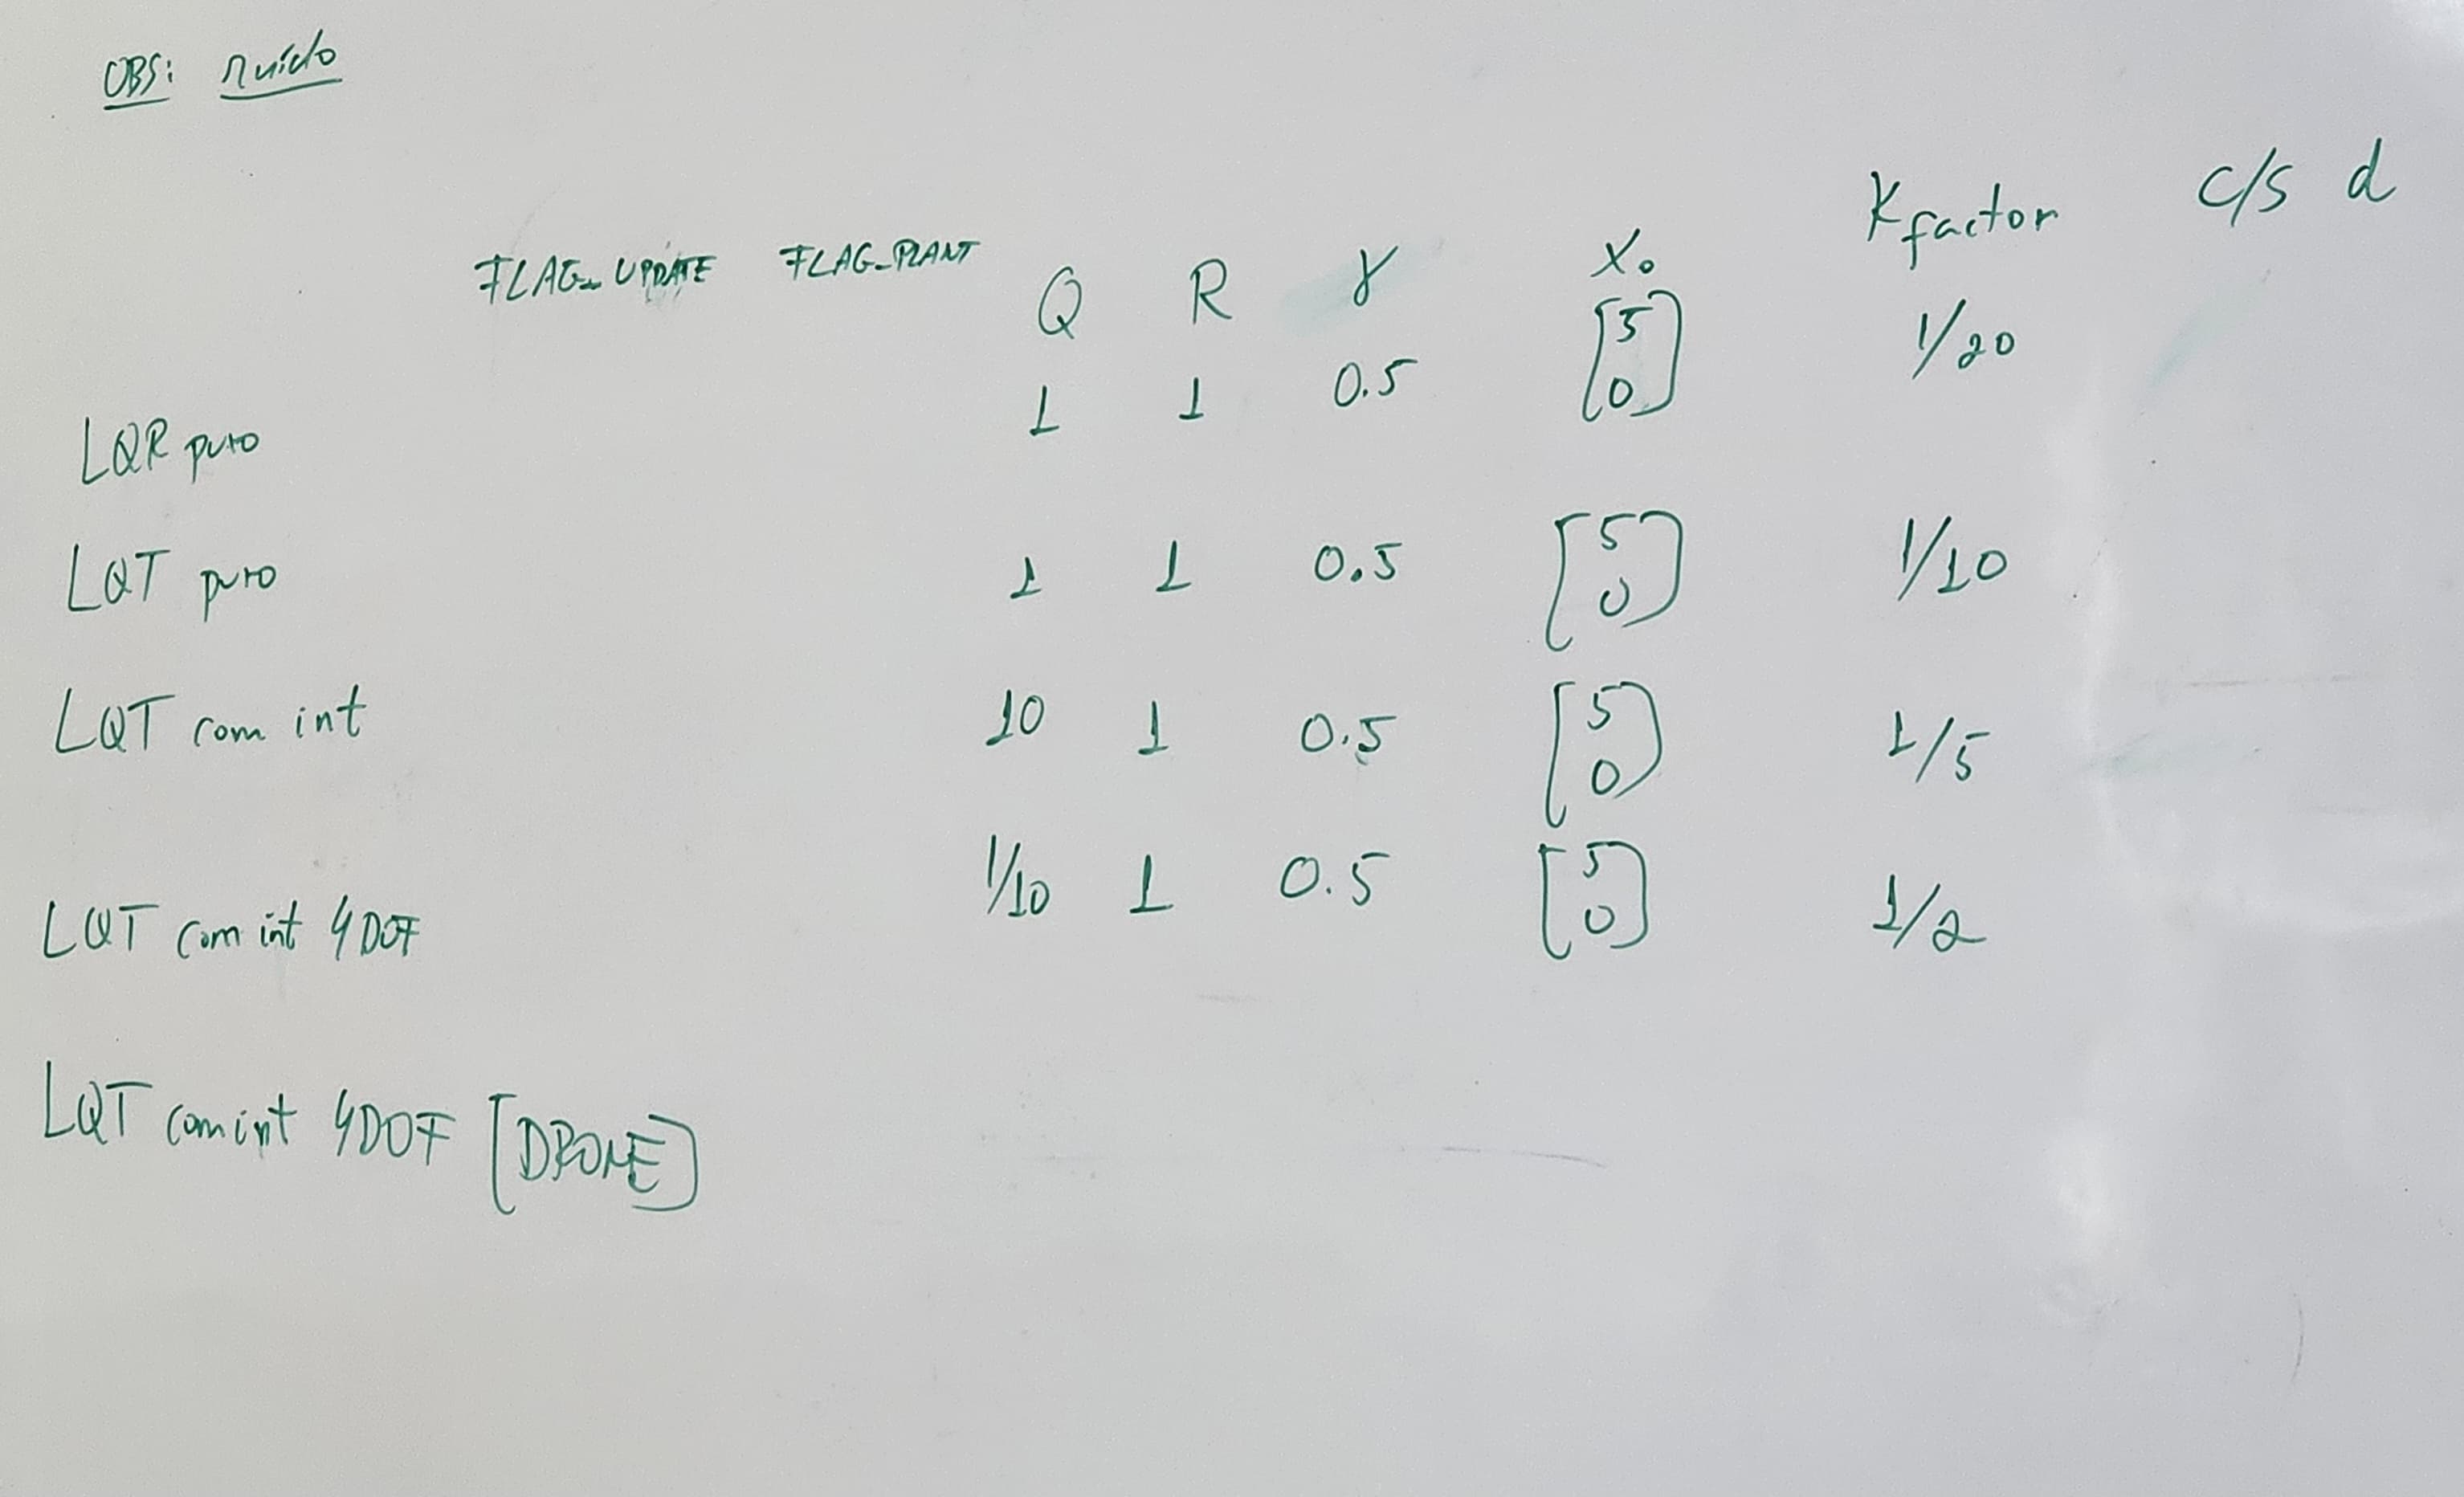 OBS: ruído
FLAG_UPDATE FLAG_PLANT Q R γ X₀ Kfactor c/s d
LQR puro 1 1 0.5 [5 0] 1/20
LQT puro 1 1 0.5 [5 0] 1/10
LQT com int 10 1 0.5 [5 0] 1/5
LQT com int 4DOF 1/10 1 0.5 [5 0] 1/2
LQT com int 4DOF [DRONE]